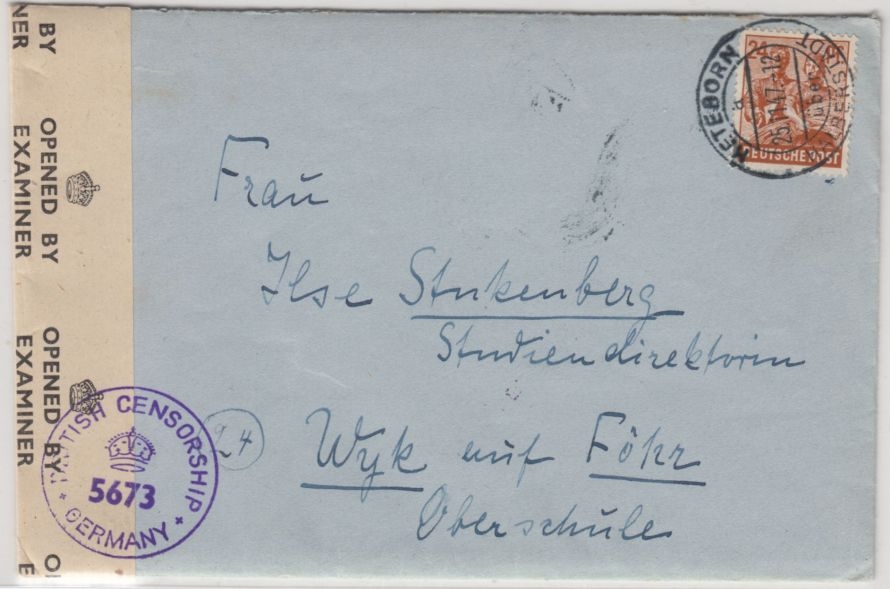 NER
BY
OPENED BY
EXAMINER
OPENED BY
EXAMINER
O
E
24
DEUTSCHE POST
METEBORN
über
HALBERSTADT
25.7.47.-12
a
Frau
Ilse Stukenberg
Studiendirektorin
24
Wyk auf Föhr
Oberschule
BRITISH CENSORSHIP
5673
GERMANY